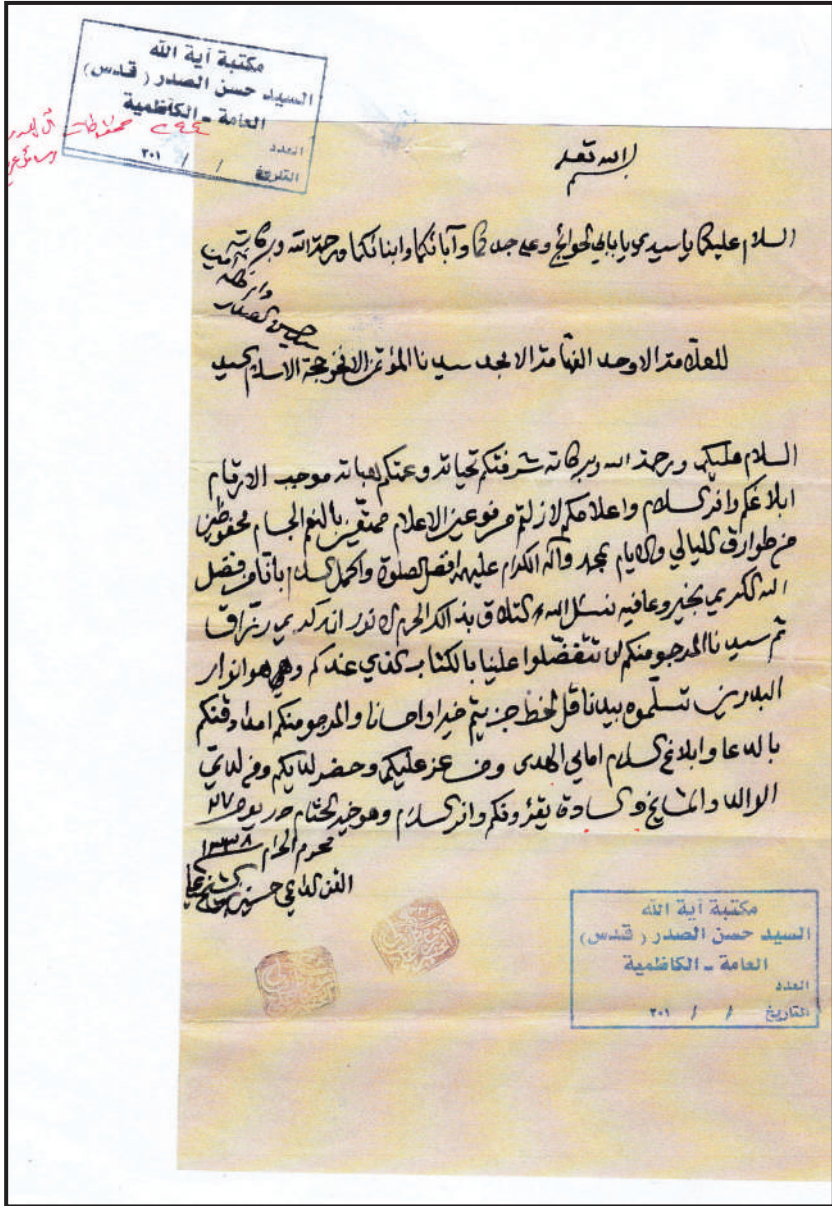 مكتبة آية الله
السيد حسن الصدر (قدس)
العامة ـ الكاظمية
العدد
التاريخ / / ٢٠١
٢٤٤
بسم الله تعالى
السلام عليكما يا سيدي يا بابي الحوائج وعلى جدكما وآبائكما وابنائكما ورحمة الله وبركاته
للعلامة الاوحد الفهامة الامجد سيدنا المؤتمن الافخر حجة الاسلام السيد
حسن الصدر دام ظله
السلام عليكم ورحمة الله وبركاته شرفتكم تحياته وعمتكم هباته موجب الارقام
ابلاغكم وافر السلام واعلامكم لازلتم مرفوعين الاعلام ممتعين بالنعم الجسام محفوظين
من طوارق الليالي والايام بمحمد وآله الكرام عليهم افضل الصلوة واكمل السلام بانا من فضل
الله الكريم بخير وعافيه نسئل الله التلاق بذالك الحرم الانور انه كريم رزاق
ثم سيدنا المرجو منكم ان تتفضلوا علينا بالكتاب الذي عندكم وهو انوار
البدرين تسلموه بيد ناقل الخط جزيتم خيرا واحسانا والمرجو منكم امدادنا منكم
بالدعا وابلاغ السلام امالي الهدى ومن عز عليكم وحضر لديكم ومن لدي
الوالد والمشايخ والسادة يقرؤنكم وافر السلام وهو خير الختام حرر يوم ٢٧
محرم الحرام ١٣٣٨
القن الداعي حسين الشيخ علي
مكتبة آية الله
السيد حسن الصدر (قدس)
العامة ـ الكاظمية
العدد
التاريخ / / ٢٠١